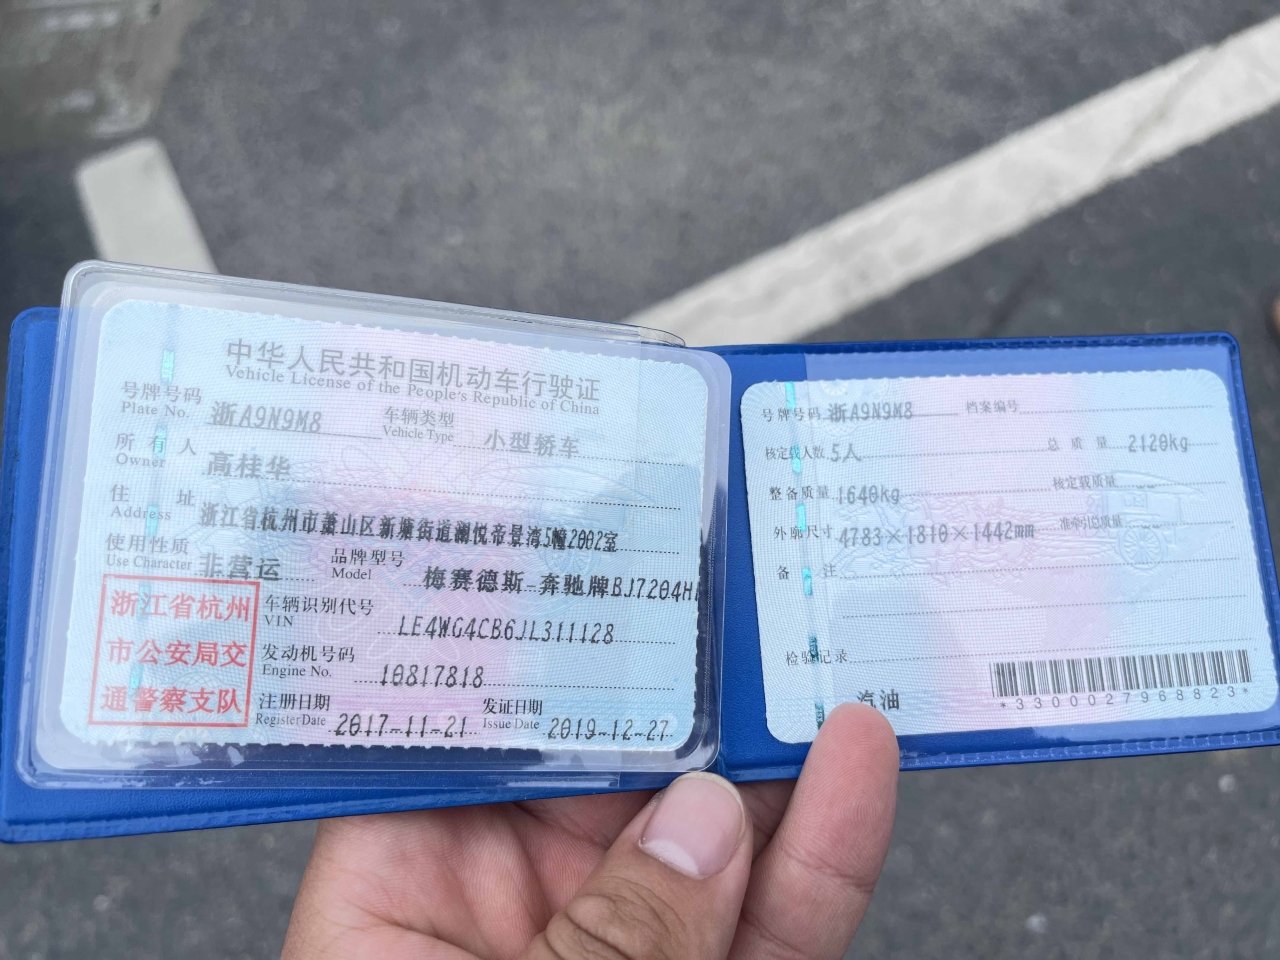 中华人民共和国机动车行驶证
Vehicle License of the People's Republic of China
号牌号码 浙A9N9M8 车辆类型 小型轿车
Plate No. Vehicle Type
所有人 高桂华
Owner
住址 浙江省杭州市萧山区新塘街道澜悦帝景湾5幢2002室
Address
使用性质 非营运 品牌型号 梅赛德斯-奔驰牌BJ7204H
Use Character Model
浙江省杭州
市公安局交
通警察支队
车辆识别代号 LE4WG4CB6JL311128
VIN
发动机号码 10817818
Engine No.
注册日期 2017-11-21 发证日期 2019-12-27
Register Date Issue Date
号牌号码 浙A9N9M8 档案编号
核定载人数 5人 总质量 2120kg
整备质量 1640kg 核定载质量
外廓尺寸 4783×1810×1442mm 准牵引总质量
备注
检验记录
汽油
*3300027968823*